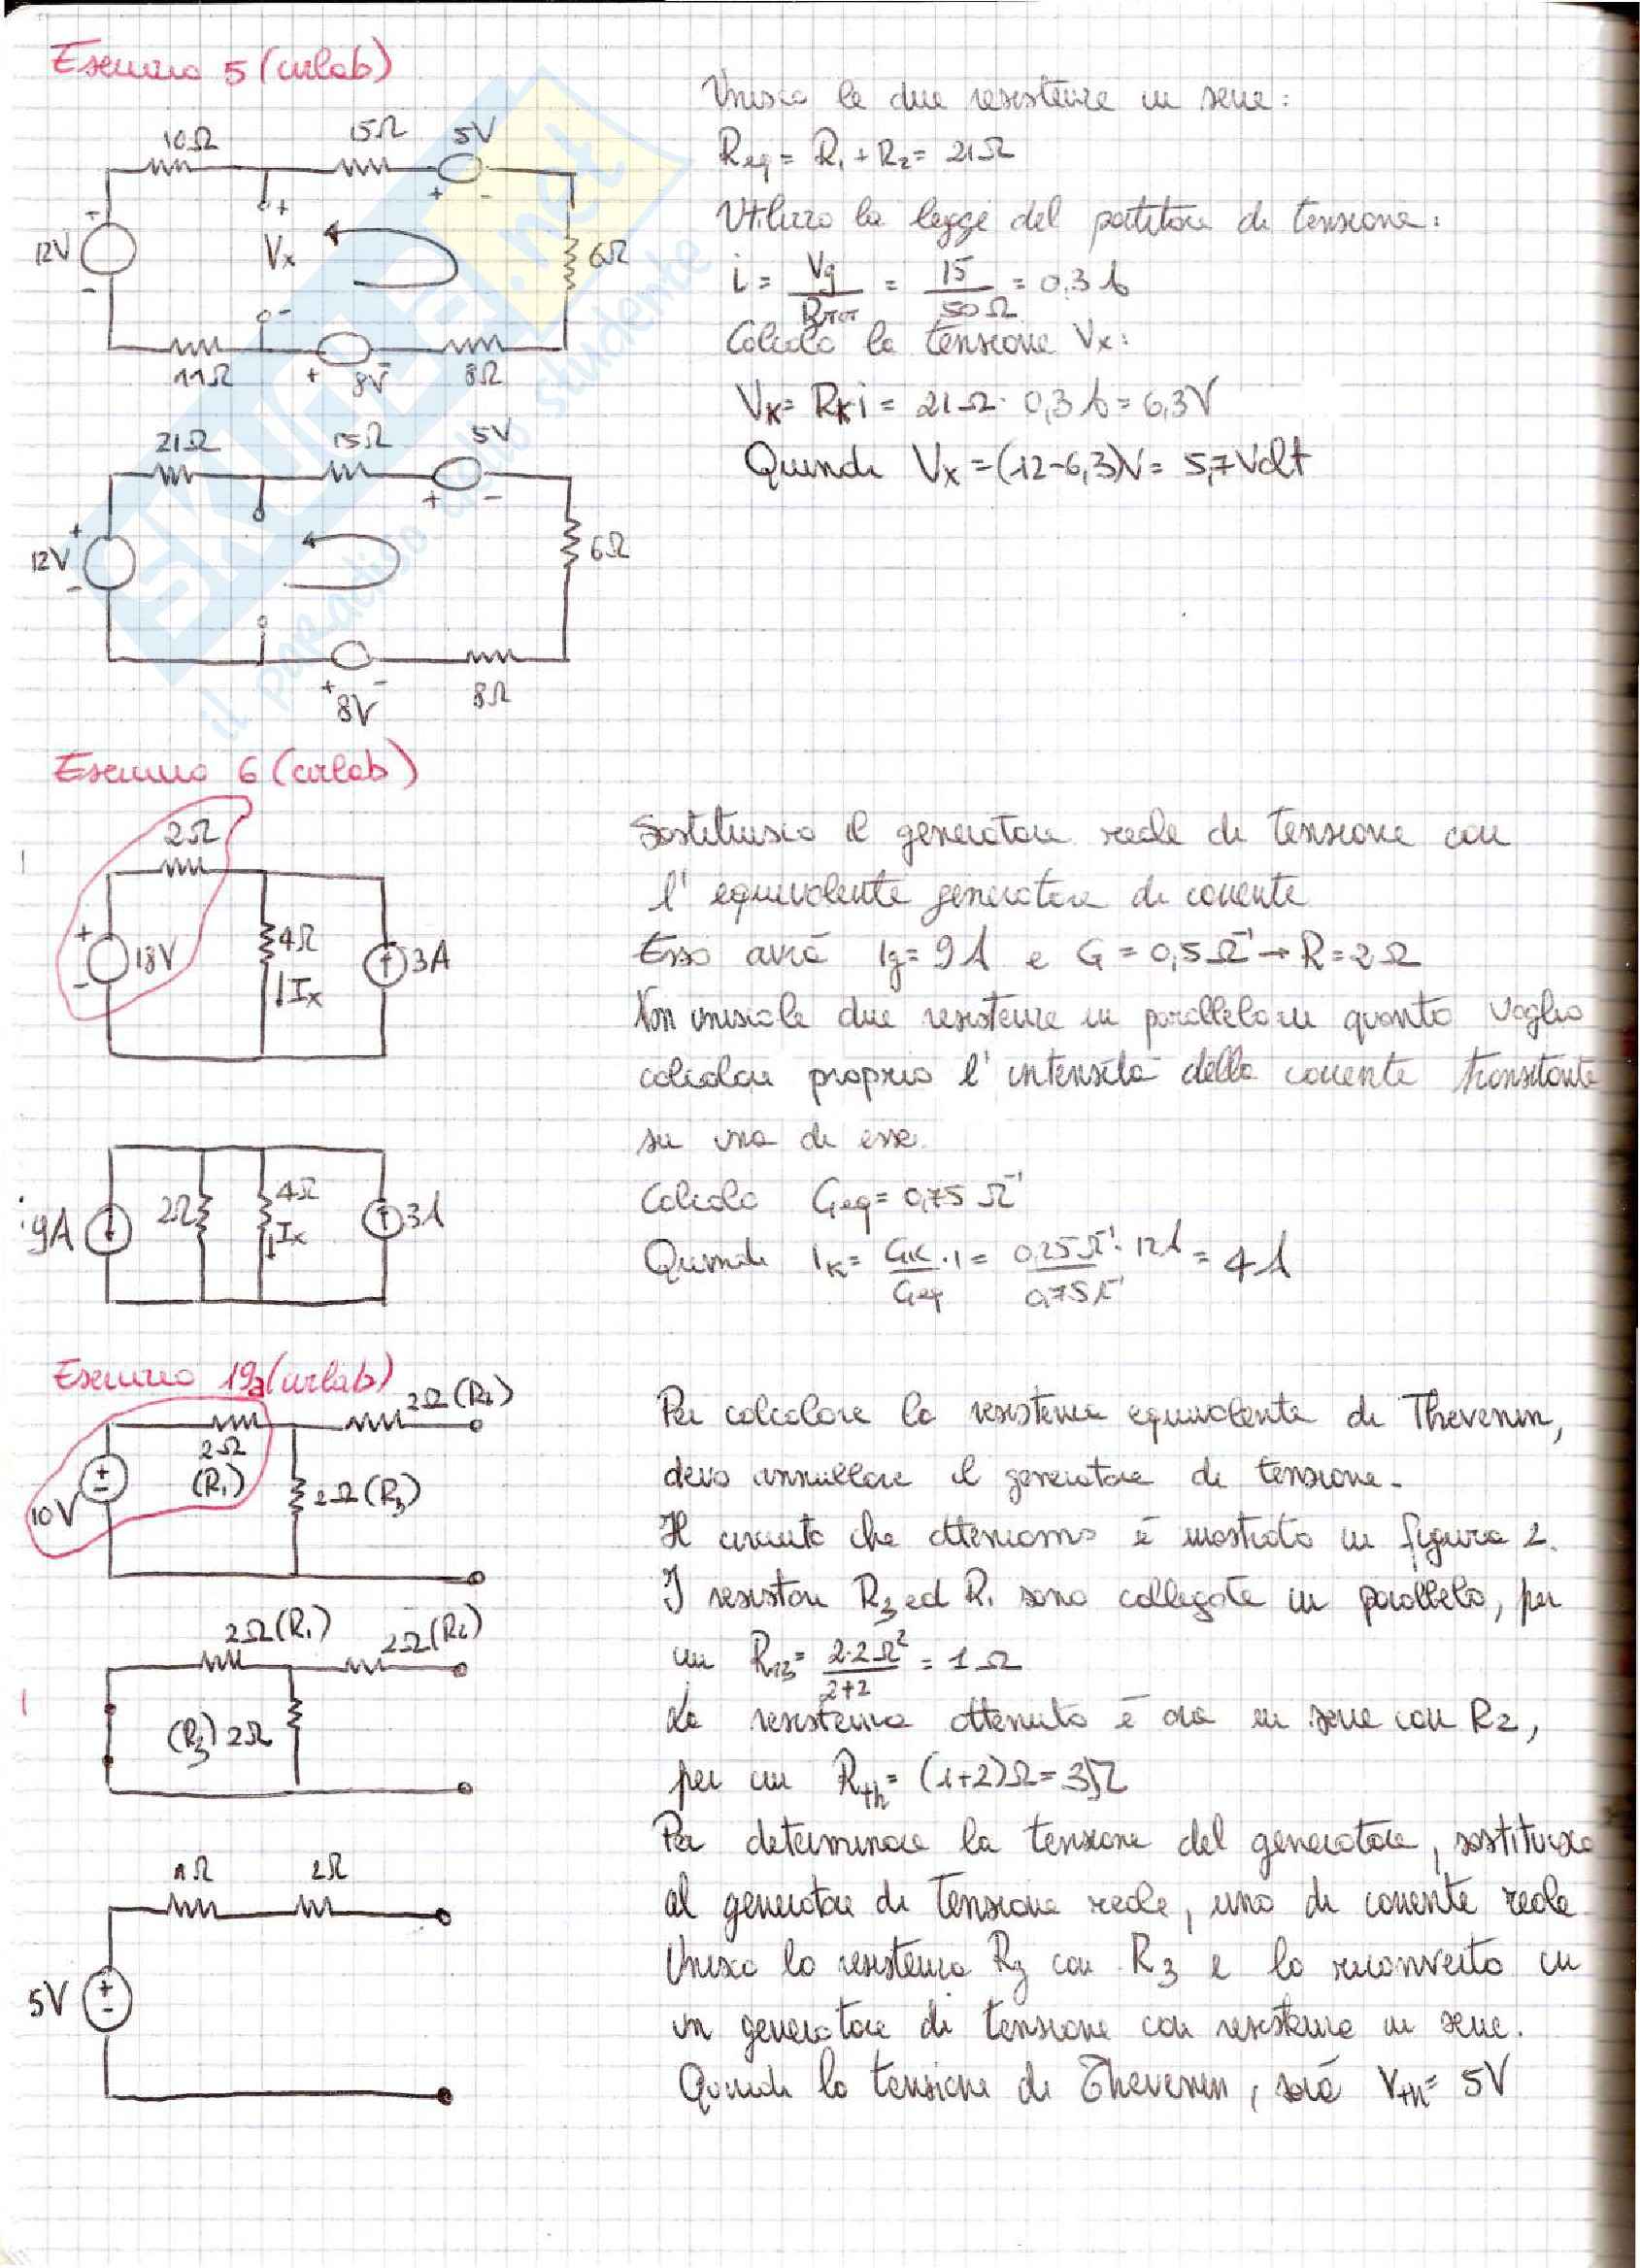 Esercizio 5 (cirlab)
10Ω 15Ω 5V
+ -
+
12V Vx 6Ω
-
-
11Ω + 8V - 8Ω
Unisco le due resistenze in serie:
Req = R1 + R2 = 21Ω
Utilizzo la legge del partitore di tensione:
i = Vg/RTOT = 15/50Ω = 0,3 A
Calcolo la tensione Vx:
VK = RK i = 21Ω · 0,3 A = 6,3V
Quindi Vx = (12-6,3)V = 5,7 Volt
21Ω 15Ω 5V
+ -
+
12V 6Ω
-
+ 8V - 8Ω
SKUOLA.net
il paradiso dello studente
Esercizio 6 (cirlab)
2Ω
+
18V 4Ω 3A
- Ix
Sostituisco il generatore reale di tensione con
l'equivalente generatore di corrente
Esso avrà Ig = 9A e G = 0,5 Ω⁻¹ → R = 2Ω
Non unisco le due resistenze in parallelo in quanto voglio
calcolare proprio l'intensità della corrente transitante
su una di esse.
Calcolo Geq = 0,75 Ω⁻¹
Quindi IK = GK/Geq · I = 0,25Ω⁻¹ · 12A / 0,75Ω⁻¹ = 4A
9A 2Ω 4Ω 3A
Ix
Esercizio 19a (cirlab)
2Ω (R2)
2Ω
(R1)
+
-
10V 2Ω (R3)
Per calcolare la resistenza equivalente di Thevenin,
devo annullare il generatore di tensione.
Il circuito che otteniamo è mostrato in figura 2.
I resistori R3 ed R1 sono collegati in parallelo, per
cui R13 = 2·2Ω²/2+2 = 1Ω
La resistenza ottenuta è ora in serie con R2,
per cui Rth = (1+2)Ω = 3Ω
Per determinare la tensione del generatore, sostituisco
al generatore di tensione reale, uno di corrente reale
Unisco la resistenza Rg con R3 e lo riconverto in
un generatore di tensione con resistenza in serie.
Quindi la tensione di Thevenin, sarà Vth = 5V
2Ω (R1) 2Ω (R2)
(R3) 2Ω
1Ω 2Ω
5V +
-